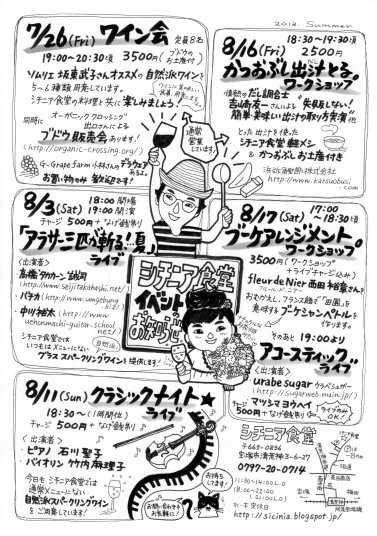 2013. Summer
7/26(Fri) ワイン会 定員8名
19:00〜20:30頃 3500円 ブドウのお土産付
ソムリエ 坂東武子さんオススメの自然派ワインを
5〜6種類用意しています。
シチニア食堂の料理と共に楽しみましょう!
同時に オーガニッククロッシング
出口さんによる
ブドウ販売会あります!
(http://organic-crossing.org/)
G-Grape Farm 小林さんのデラウェア
お買い物のみ歓迎です!
通常営業してます。
8/16(Fri) 18:30〜19:30頃
2500円
かつおぶし出汁とる。
ワークショップ
情熱のだし調合士
吉崎友一さんによる 失敗しない!
簡単・美味しい出汁の取り方実演他
とった出汁を使った
シチニア食堂 軽〆シ
& かつおぶしお土産付き
浜弥鰹節株式会社
http://www.katsuobusi.com
8/3(Sat) 18:00 開場
19:00 開演
チャージ 500円+なげ銭制
「アラサー三匹が斬る!!夏」
ライブ
〈出演者〉
・高橋タカカーン誠司
(http://www.seijitakahashi.net/)
・バラカ(http://www.umgebung.biz/)
・中川裕太(http://www.uchonmachi-guitar-school.net/)
シチニア食堂では
いつもはメニューにない 自然派
グラス スパークリングワインを提供します!
シチニア食堂
イベントの
お知らせ
8/17(Sat) 17:00〜18:30頃
ブーケアレンジメント。
ワークショップ
3500円(ワークショップ
+ライブチャージ込み)
fleur de Nier 西田裕章さんを
おむかえし、フランス語で「田園」を
意味する ブーケシャンペトルを
作ります。
そのあと 19:00より
アコースティック
ライブ
〈出演者〉
urabe sugar ウラベシュガー
(http://sugarweb.main.jp/)
マツシマヨウヘイ
チャージ 500円+なげ銭制 ライブのみOK!
8/11(Sun) クラシックナイト★
ライブ
18:30〜(1時間位)
チャージ 500円+なげ銭制
〈出演者〉
ピアノ 石川聖子
バイオリン 竹内麻理子
今日も シチニア食堂では
通常メニューにない
自然派スパークリングワイン
をご用意しています!
お持ちしてます!
お問い合わせもお気軽に!
シチニア食堂
〒665-0836
宝塚市清荒神3-6-27
0797-20-0714
11:30-14:00 L.O
18:00-22:00
(21:00 L.O)
水・木 定休日
http://sicinia.blogspot.jp/